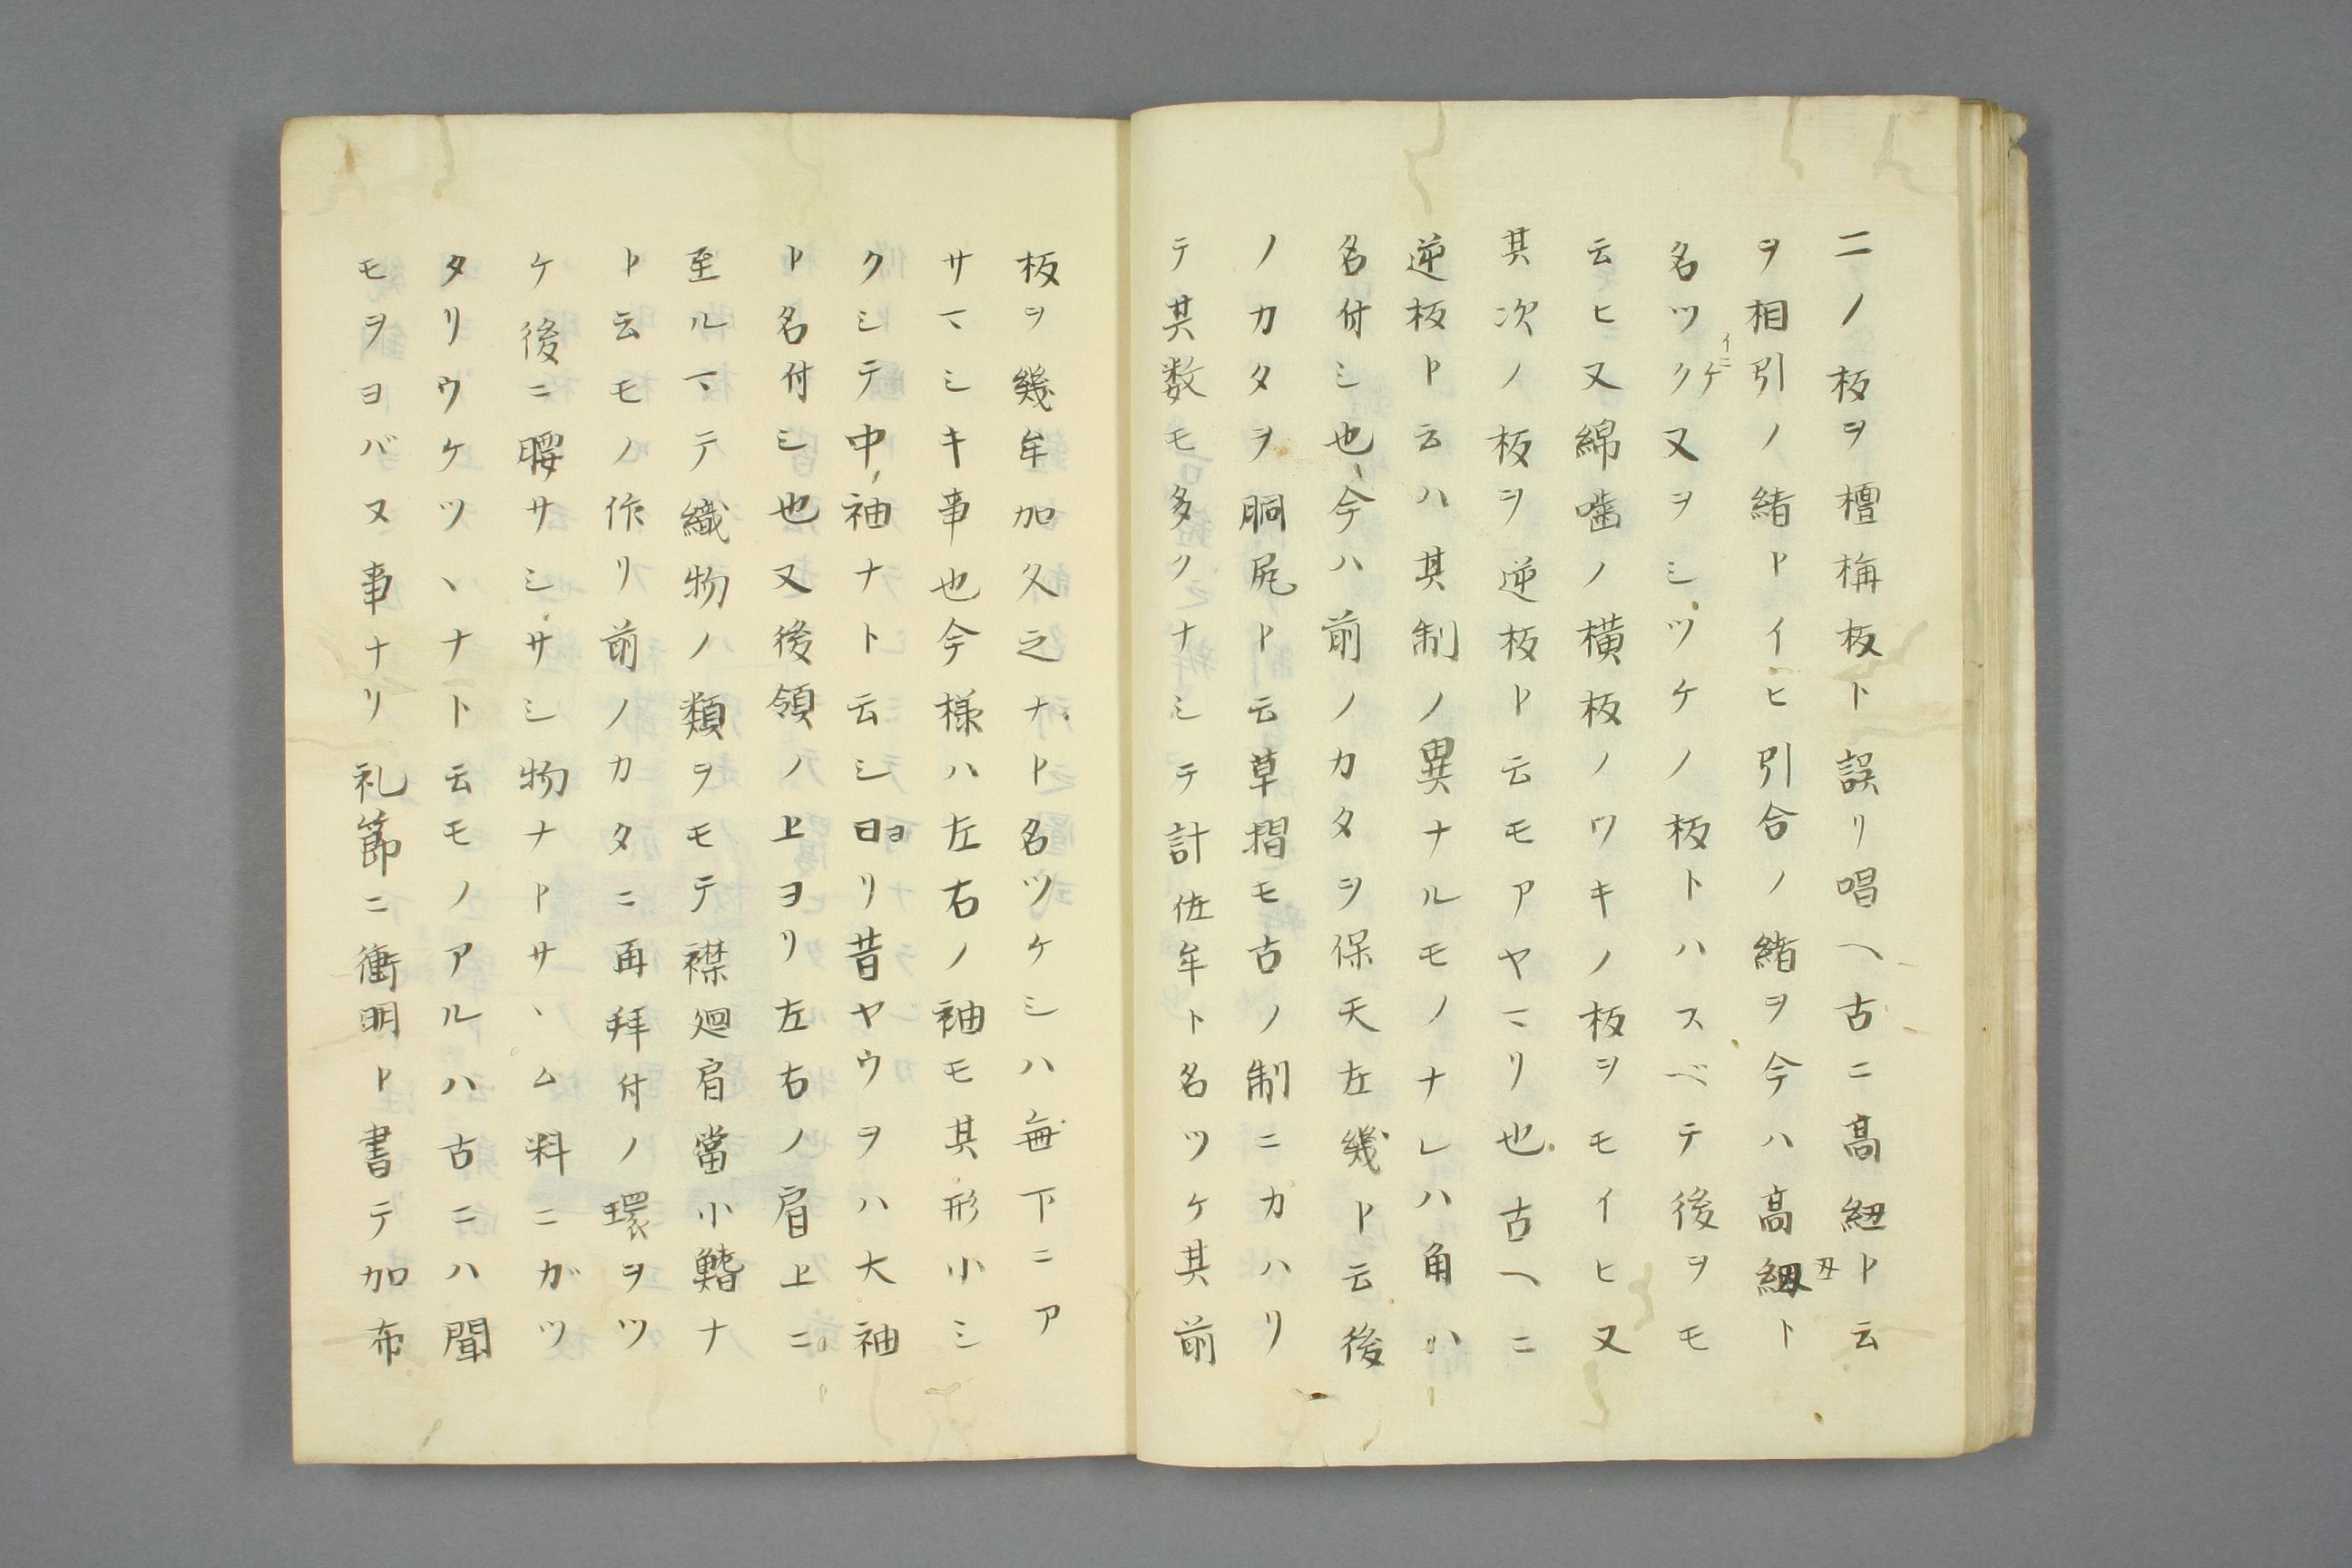 二ノ板ヲ檀栴板ト誤リ唱ヘ古ニ髙紐ト云
ヲ相引ノ緒トイヒ引合ノ緒ヲ今ハ髙細ト
丑
名ツクケ又ヲシツケノ板トハスベテ後ヲモ
イニ
云ヒ又綿噛ノ横板ノワキノ板ヲモイヒ又
其次ノ板ヲ逆板ト云モアヤマリ也古ヘニ
逆板ト云ハ其制ノ異ナルモノナレハ角ハ
名付シ也今ハ前ノカタヲ保天左幾ト云後
ノカタヲ胴尻ト云草摺モ古ノ制ニカハリ
テ其数モ多クナシテ計佐牟ト名ツケ其前
板ヲ幾牟加久之ナト名ツケシハ無下ニア
サマシキ事也今様ハ左右ノ袖モ其形小シ
クシテ中袖ナト云シヨリ昔ヤウヲハ大袖
ト名付シ也又後領ノ上ヨリ左右ノ肩上ニ
至ルマテ織物ノ類ヲモテ襟廻肩當小鰭ナ
ト云モノ作リ前ノカタニ再拜付ノ環ヲツ
ケ後ニ腰サシサシ物ナトサヽム料ニガツ
タリウケツヽナト云モノアルハ古ニハ聞
モヲヨバヌ事ナリ礼節ニ衝明ト書テ加布